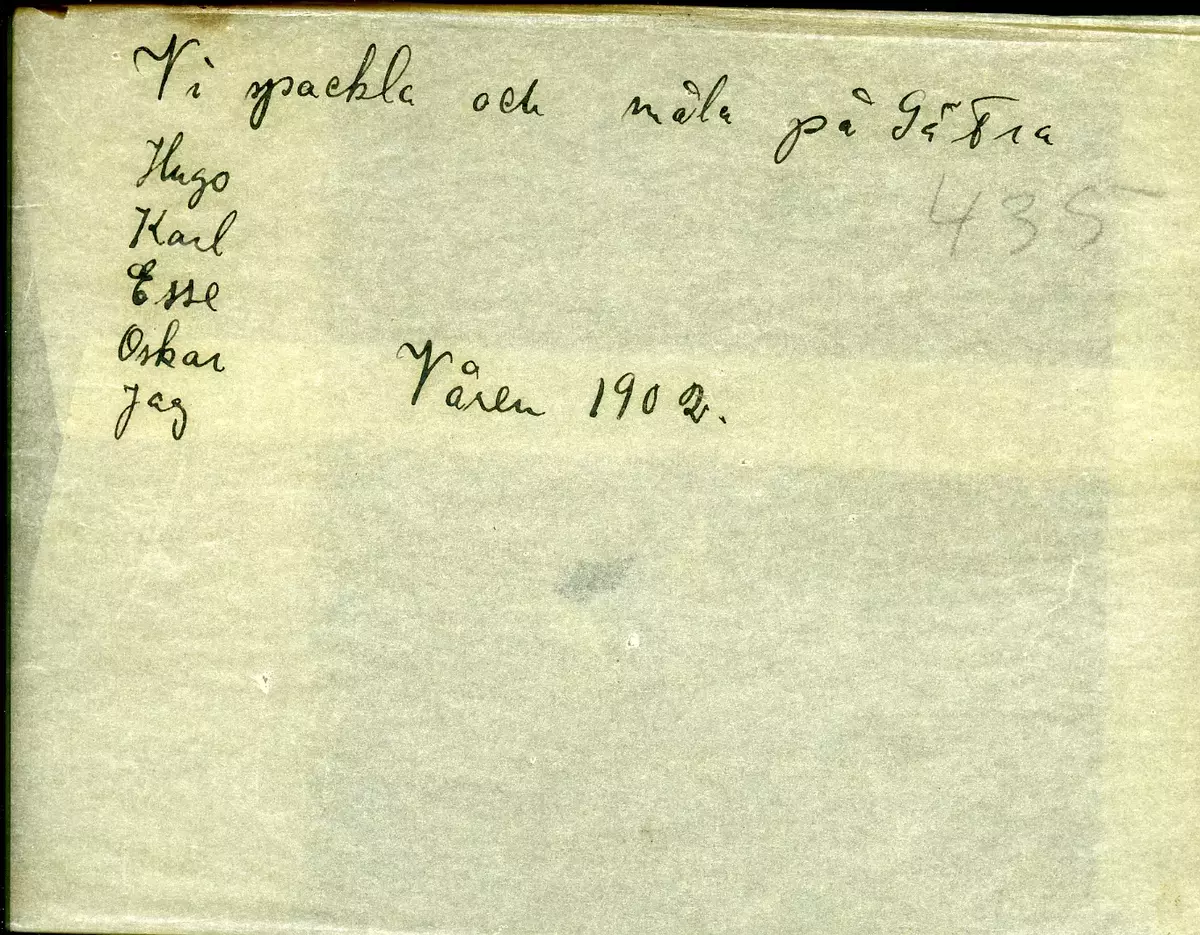 Vi spackla och måla på Gätra
Hugo
435
Karl
Esse
Oskar
Våren 1902.
Jag